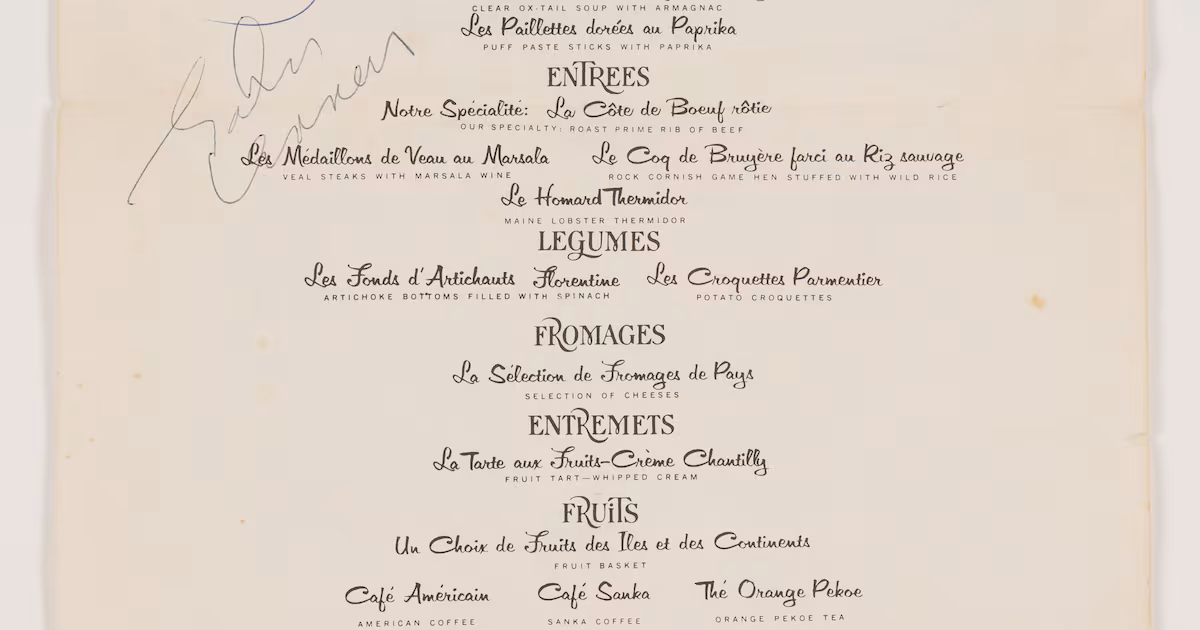 CLEAR OX-TAIL SOUP WITH ARMAGNAC
Les Paillettes dorées au Paprika
PUFF PASTE STICKS WITH PAPRIKA
ENTREES
Notre Spécialité: La Côte de Boeuf rôtie
OUR SPECIALTY: ROAST PRIME RIB OF BEEF
Les Médaillons de Veau au Marsala Le Coq de Bruyère farci au Riz sauvage
VEAL STEAKS WITH MARSALA WINE ROCK CORNISH GAME HEN STUFFED WITH WILD RICE
Le Homard Thermidor
MAINE LOBSTER THERMIDOR
LEGUMES
Les Fonds d'Artichauts Florentine Les Croquettes Parmentier
ARTICHOKE BOTTOMS FILLED WITH SPINACH POTATO CROQUETTES
FROMAGES
La Sélection de Fromages de Pays
SELECTION OF CHEESES
ENTREMETS
La Tarte aux Fruits-Crème Chantilly
FRUIT TART—WHIPPED CREAM
FRUiTS
Un Choix de Fruits des Iles et des Continents
FRUIT BASKET
Café Américain Café Sanka Thé Orange Pekoe
AMERICAN COFFEE SANKA COFFEE ORANGE PEKOE TEA